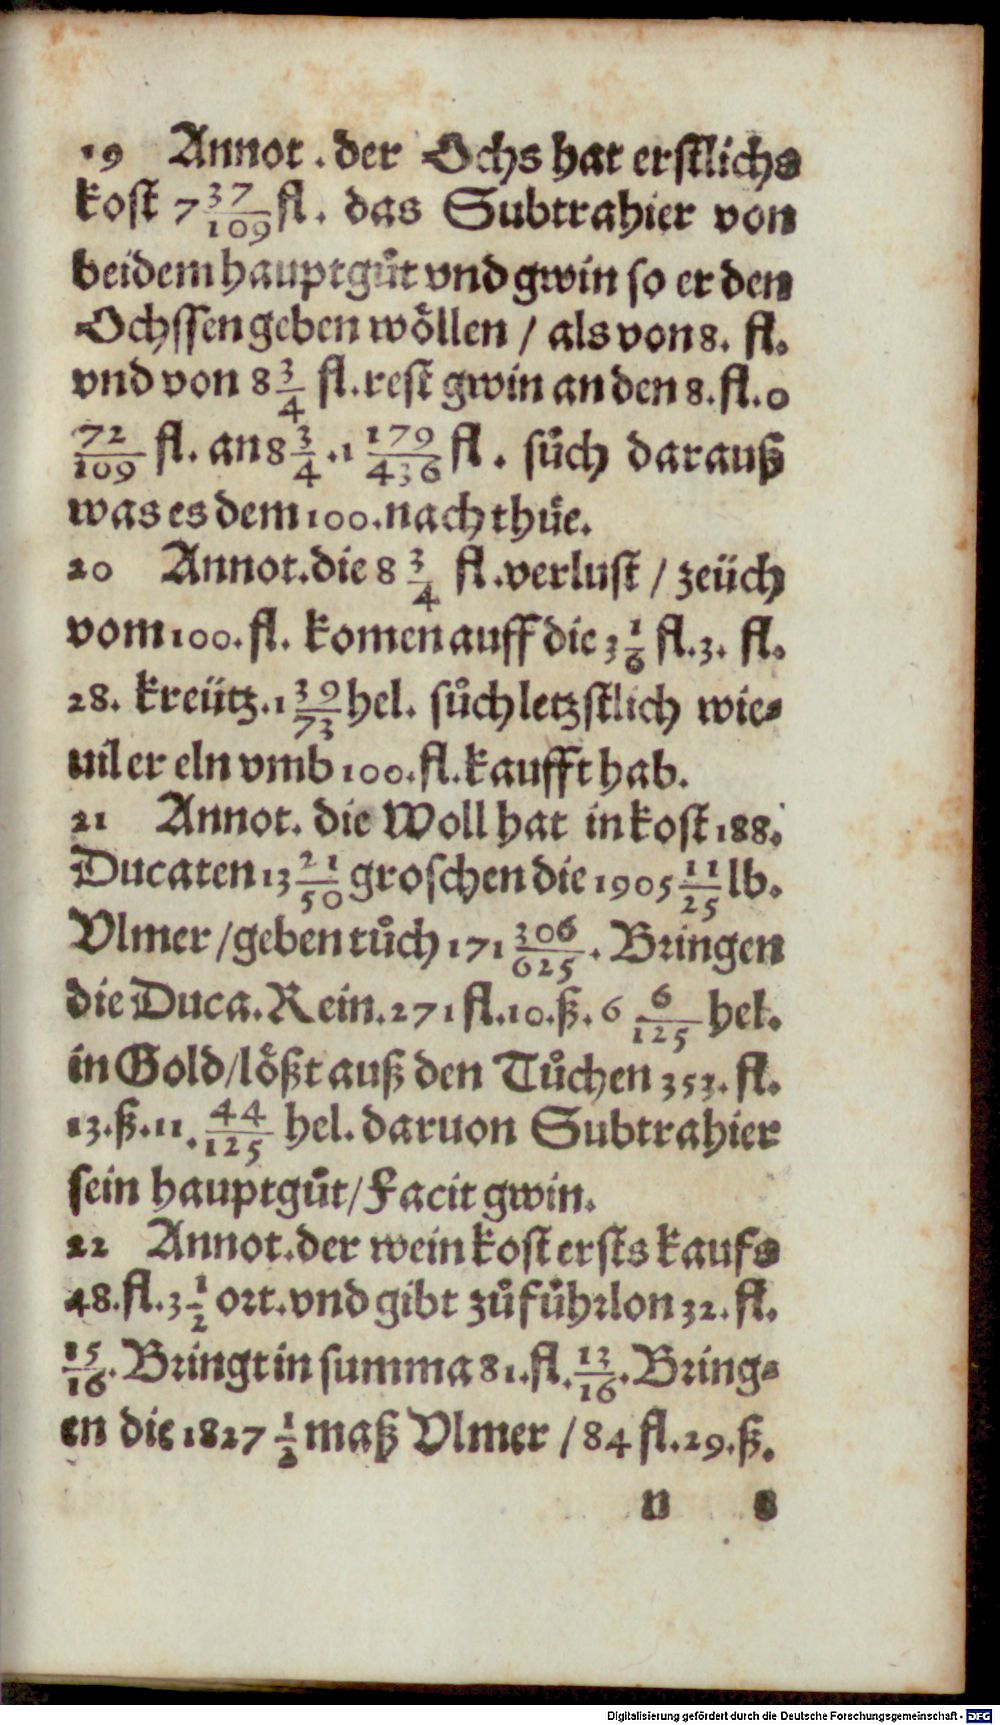 19 Annot. der Ochs hat erstlichs
kost 7 37/109 fl. das Subtrahier von
beidem hauptgůt vnd gwin so er den
Ochssen geben wöllen / als von 8. fl.
vnd von 8 3/4 fl. rest gwin an den 8. fl. 0
72/109 fl. an 8 3/4 . 1 179/436 fl. sůch darauß
was es dem 100. nach thüe.
20 Annot. die 8 3/4 fl. verlust / zeüch
vom 100. fl. komen auff die 3 1/6 fl. 3. fl.
28. kreütz. 1 39/73 hel. sůch letzstlich wie-
uil er eln vmb 100. fl. kaufft hab.
21 Annot. die Woll hat inkost 188.
Ducaten 13 21/50 groschen die 1905 11/25 lb.
Vlmer / geben tůch 171 306/625 . Bringen
die Duca. Rein. 271 fl. 10. ß. 6 6/125 hel.
in Gold / lößt auß den Tůchen 353. fl.
13. ß. 11. 44/125 hel. daruon Subtrahier
sein hauptgůt / Facit gwin.
22 Annot. der wein kost ersts kaufs
48. fl. 3 1/2 ort. vnd gibt zůfůhrlon 32. fl.
15/16 . Bringt in summa 81. fl. 13/16 . Bring-
en die 1827 1/2 maß Vlmer / 84 fl. 29. ß.
n 8
Digitalisierung gefördert durch die Deutsche Forschungsgemeinschaft - DFG